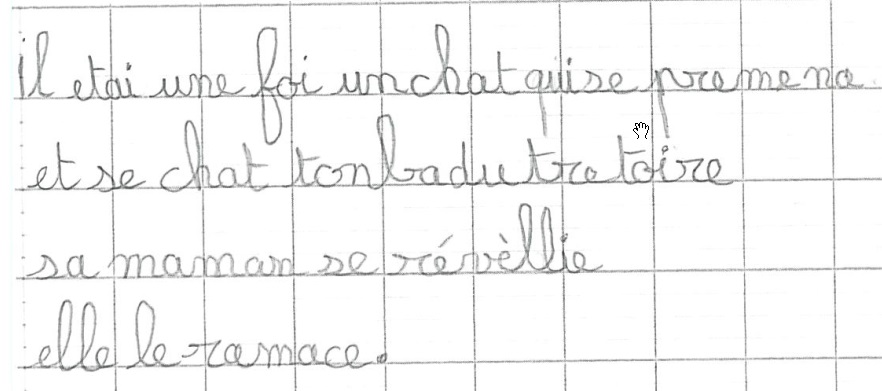 il etai une foi un chat qui se premena
et se chat tonba du tratoire
sa maman se révèllie
elle le ramace.